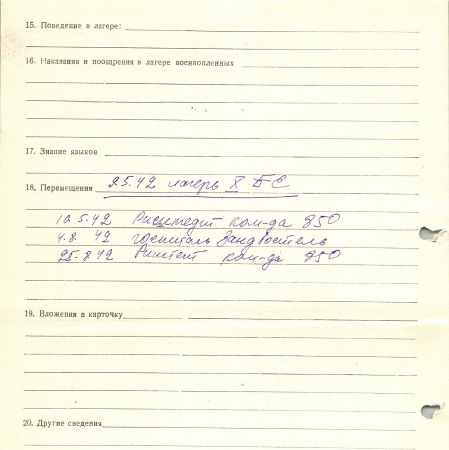 15. Поведение в лагере:
16. Наказания и поощрения в лагере военнопленных
17. Знание языков
18. Перемещения 2.5.42 лагерь X Б-С
10.5.42 ком-да 850
4.8.42 госпиталь Зандбостель
25.8.42 ком-да 850
19. Вложения в карточку
20. Другие сведения